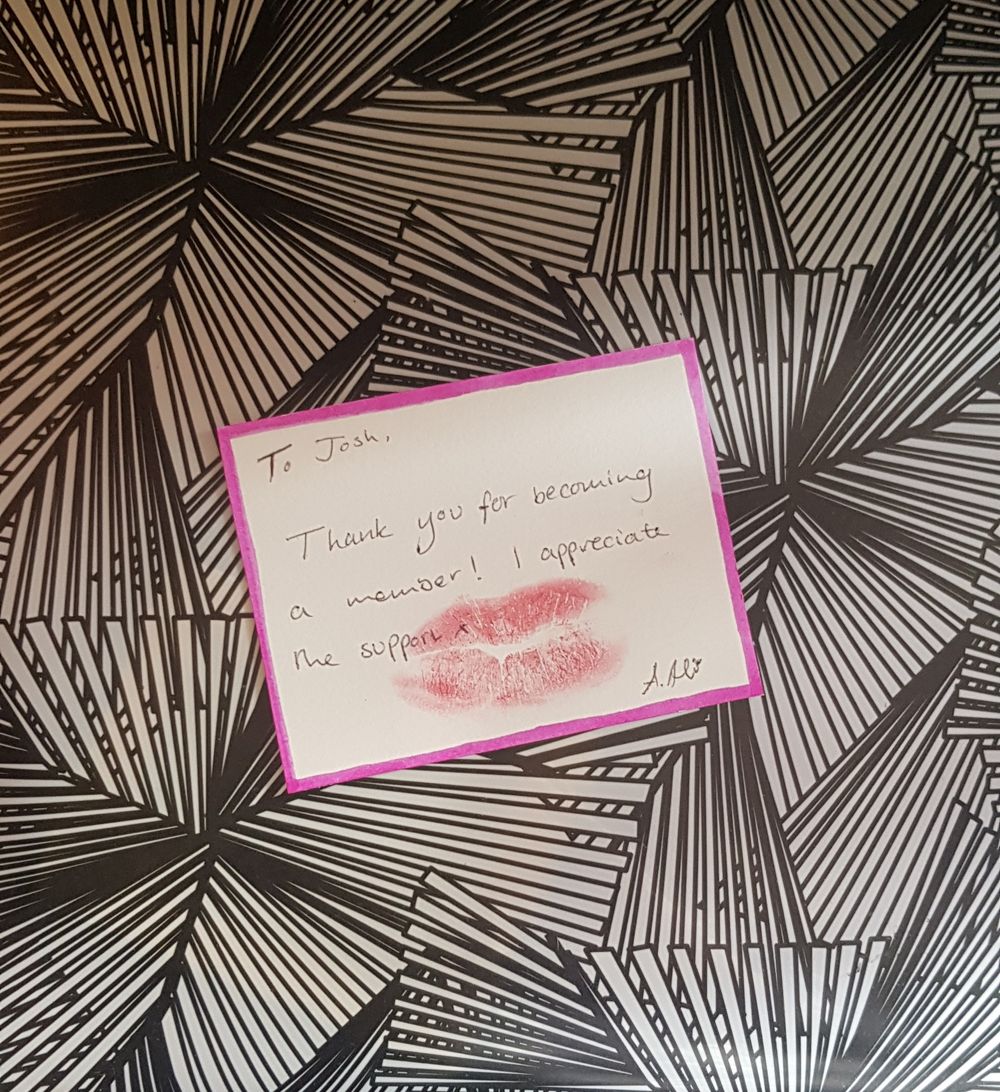 To Josh,
Thank you for becoming
a member! I appreciate
the support x
A. Ali